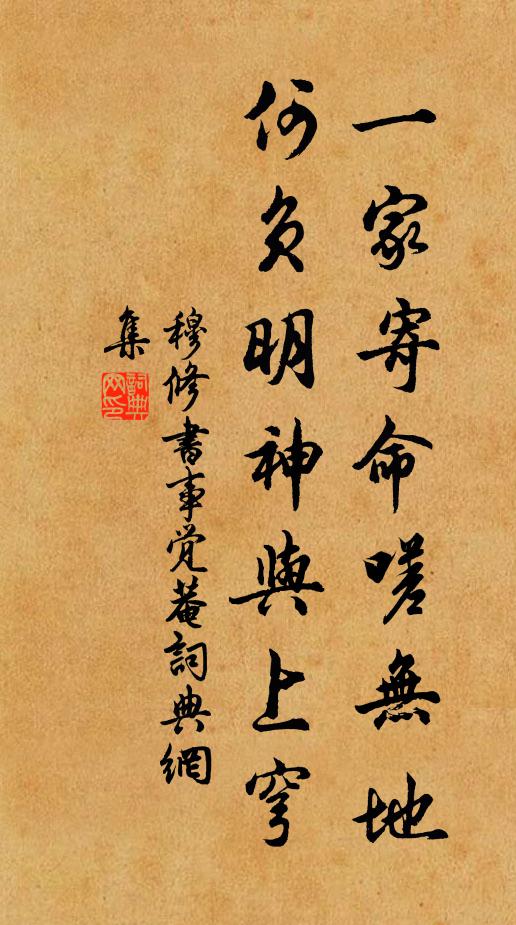 一家寄命嗟無地
何負明神與上穹
穆修書事覚菴詞典網
集
詞典
网印